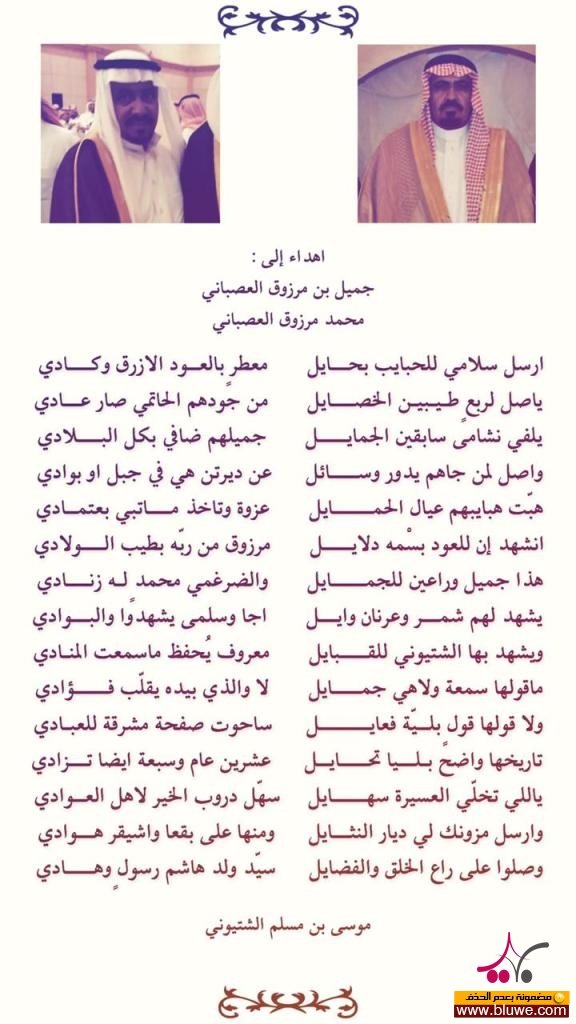 اهداء إلى :
جميل بن مرزوق العصباني
محمد مرزوق العصباني
ارسل سلامي للحبايب بحـــايل معطرٍ بالعـــود الازرق وكـــــادي
ياصل لربعٍ طـــيبيـــن الخصــــايل من جودهم الحاتمي صار عـــادي
يلفي نشامى سابقين الجمايـــــل جميلهم ضافي بكل البـــــلادي
واصل لمن جاهم يدور وســـائل عن ديرتن هي في جبل او بوادي
هبّت هبايبهم عيال الحمـــــايل عزوة وتاخذ مـــاتبي بعتمـــادي
انشهد إن للعود بسْمه دلايـــل مرزوق من ربّه بطيب الـــولادي
هذا جميل وراعين للجمـــــايل والضرغمي محمد لـــه زنـــادي
يشهد لهم شمـــر وعرنان وايـــل اجا وسلمى يشهدوا والبـــوادي
ويشهد بها الشتيوني للقـــبايل معروف يُحفظ ماسمعت المنادي
ماقولها سمعة ولاهي جمـــايل لا والذي بيده يقلّب فـــؤادي
ولا قولها قول بلـــيّة فعايـــــل ساحوت صفحة مشرقة للعبادي
تاريخها واضحٍ بـــلـــيا تحـــايـــل عشرين عام وسبعة ايضا تـــزادي
ياللي تخلّي العسيرة سهـــــايل سهّل دروب الخير لاهل العـوادي
وارسل مزونك لي ديار النثـــايل ومنها على بقعا واشيقر هـــوادي
وصلوا على راع الخلق والفضايل سيّد ولد هاشم رسولٍ وهـــــادي
موسى بن مسلم الشتيوني
مضمونة بعدم الحذف
www.bluwe.com